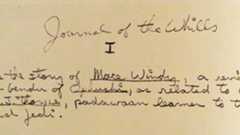 Journal of the Whills
I
the story of Mace Windy, a
Bendu of Opuchi, as related to
Thorpe, padawaan learner to
Jedi.